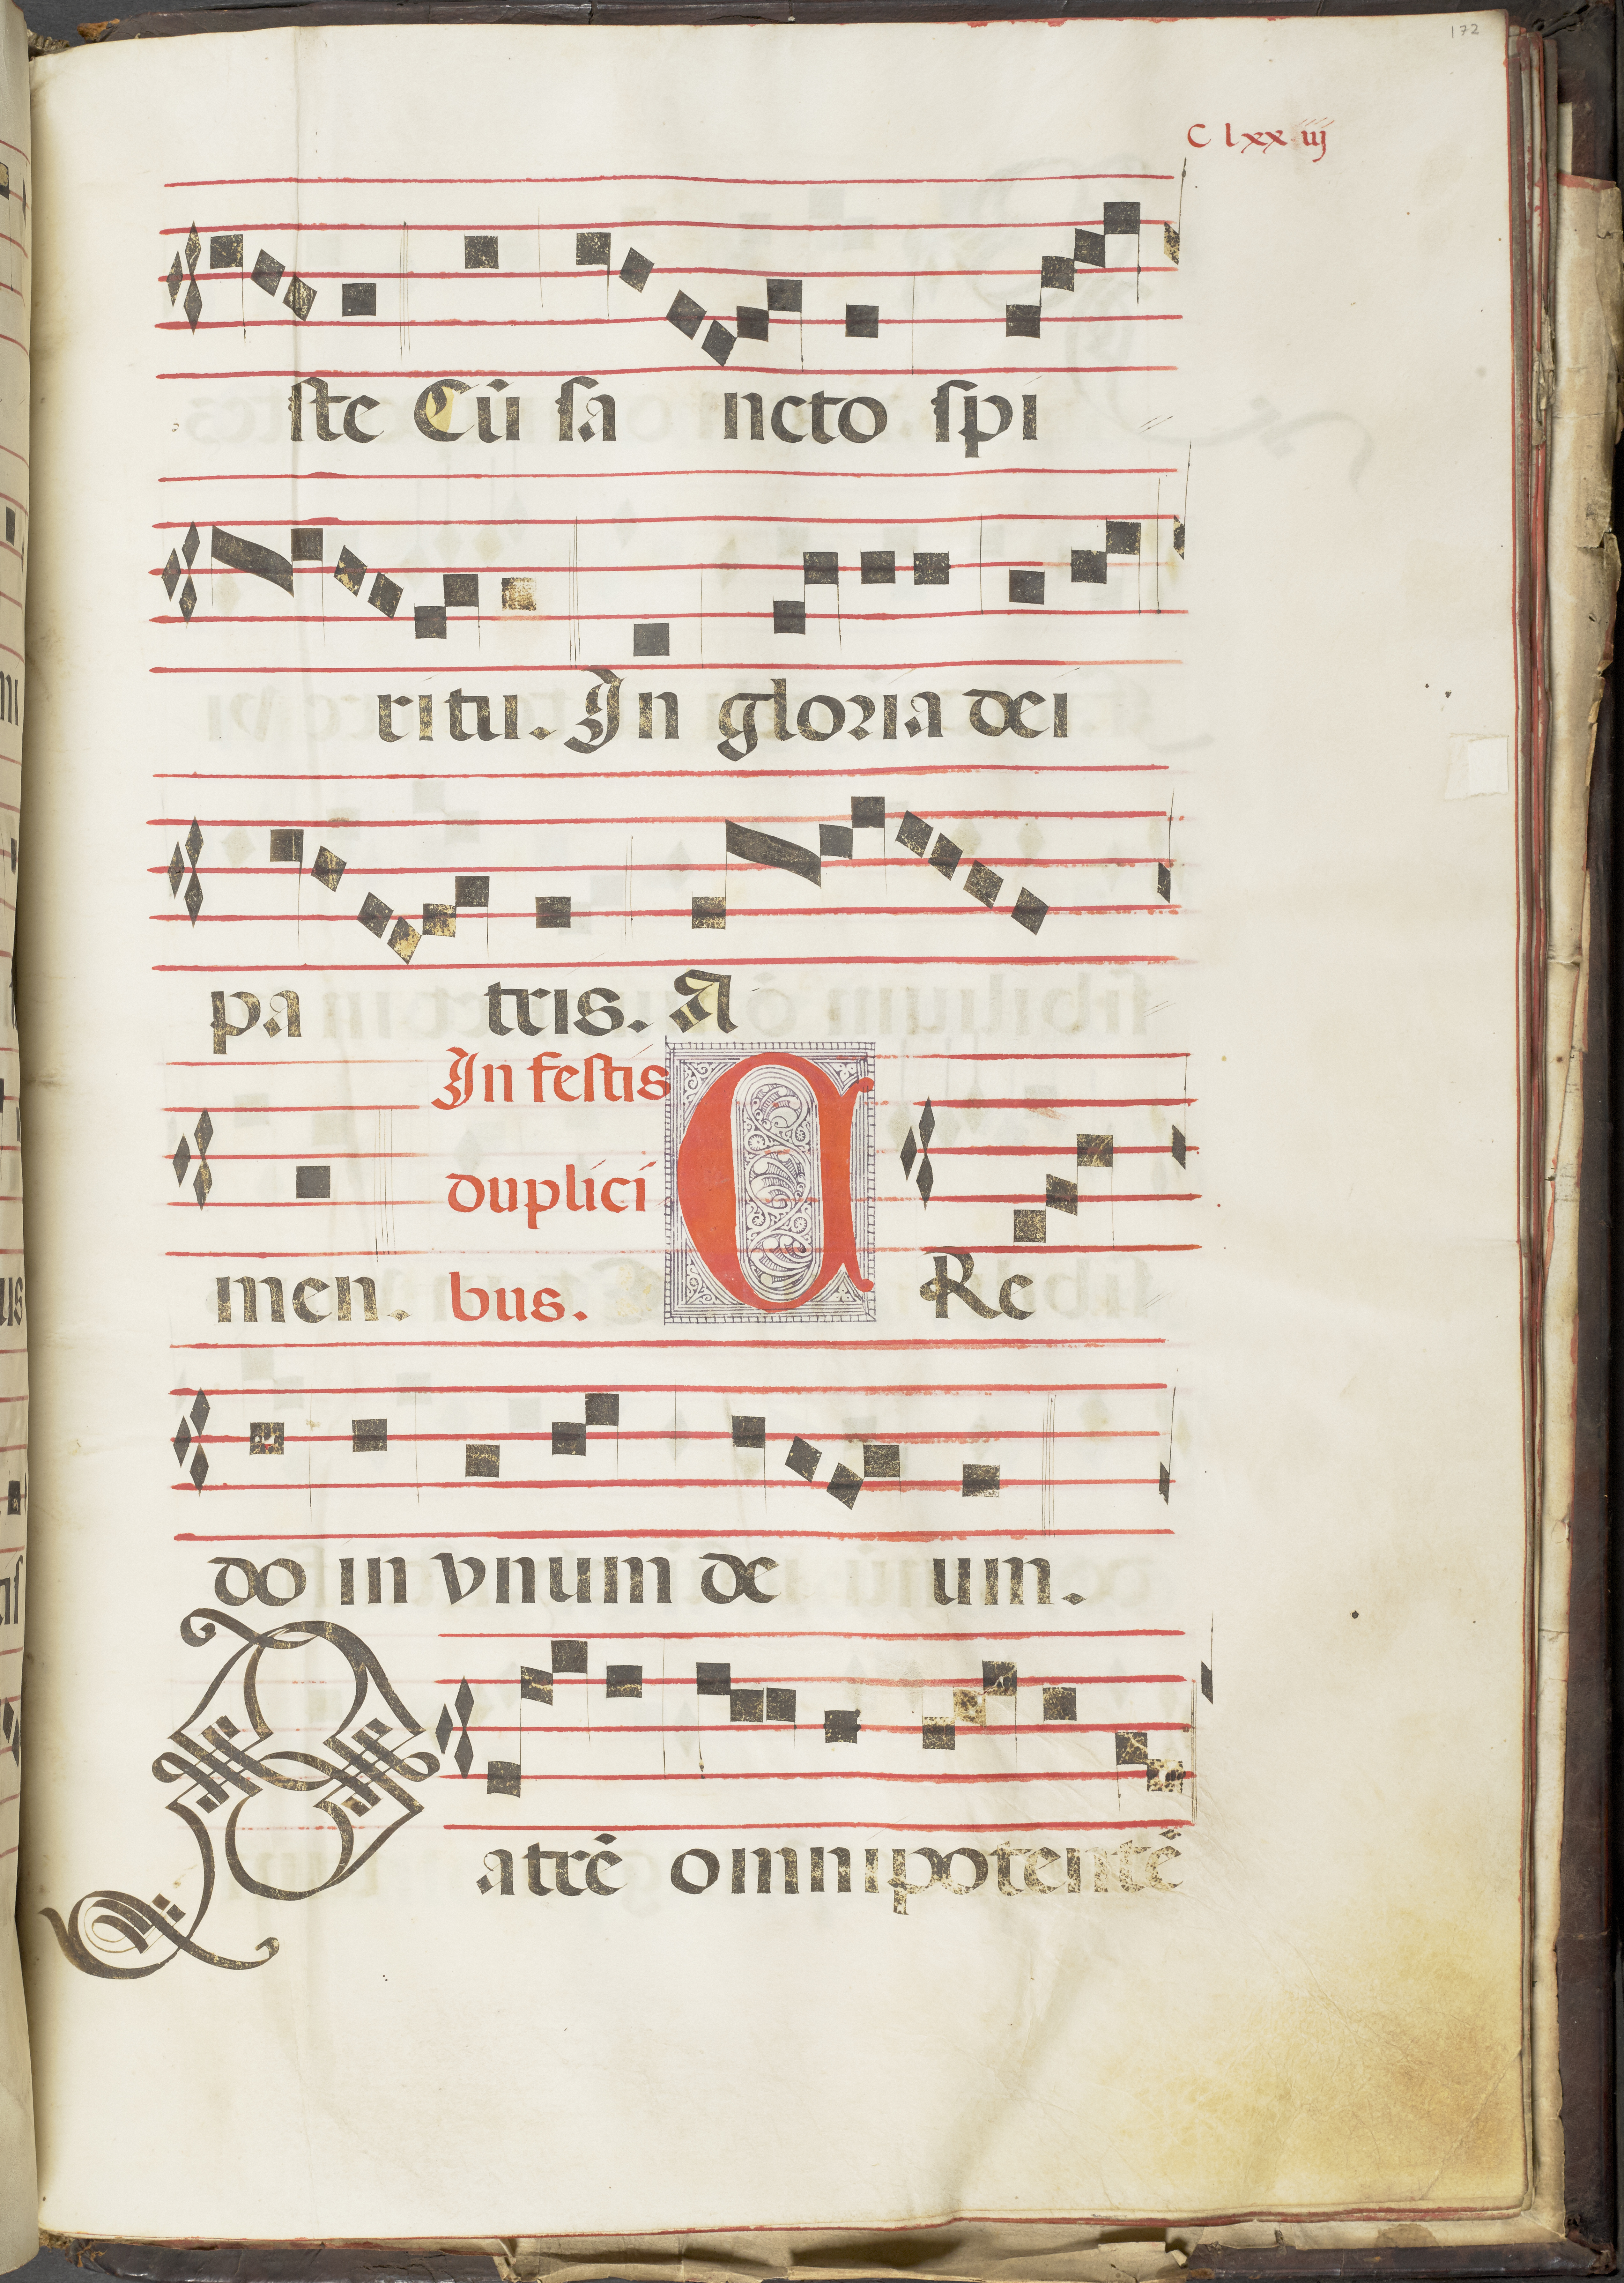 172
C lxx iij
ste Cũ sa ncto spi
ritu. In gloria dei
pa tris. A
In festis
duplici
men. bus. C Re
do in vnum de um.
Patrẽ omnipotentẽ